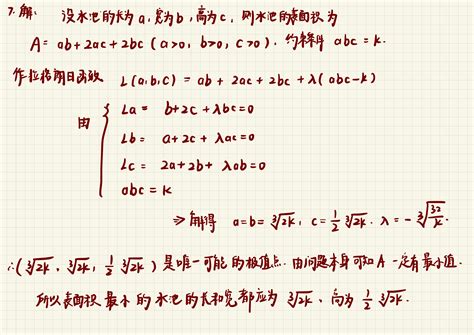 7.解: 设水池的长为a,宽为b,高为c,则水池的表面积为
A= ab+2ac+2bc (a>0, b>0, c>0). 约束条件 abc=k.
作拉格朗日函数 L(a,b,c) = ab + 2ac + 2bc + λ(abc-k)
由 { La = b+2c+λbc=0
Lb = a+2c+λac=0
Lc = 2a+2b+λab=0
abc = k
⇒ 解得 a=b= ∛2k, c= 1/2 ∛2k. λ= -∛(32/k).
∴(∛2k, ∛2k, 1/2 ∛2k) 是唯一可能的极值点. 由问题本身可知A一定有最小值.
所以表面积最小的水池的长和宽都应为 ∛2k, 高为 1/2 ∛2k.